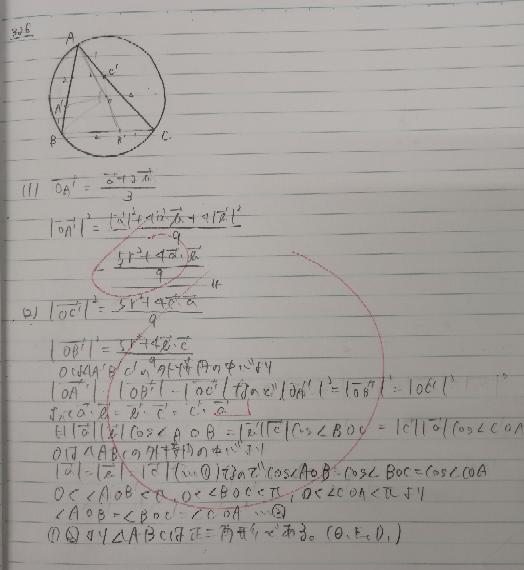 A
C'
2
A'
B
A'
C
(1) OA' = a+2b / 3
|OA'|² = |a|²+4a·b+4|b|² / 9
= 5r²+4a·b / 9
(2) |OC'|² = 5r²+4c·a / 9
|OB'|² = 5r²+4b·c / 9
OはA'B'C'の外接円の中心より
|OA'| = |OB'| = |OC'| すなわち |OA'|² = |OB'|² = |OC'|²
よって a·b = b·c = c·a
|a||b|cos∠AOB = |b||c|cos∠BOC = |c||a|cos∠COA
Oは△ABCの外接円の中心より
|a|=|b|=|c| (…①) なので cos∠AOB=cos∠BOC=cos∠COA
0<∠AOB<π, 0<∠BOC<π, 0<∠COA<πより
∠AOB=∠BOC=∠COA …②
①②より △ABCは正三角形である。(Q.E.D.)